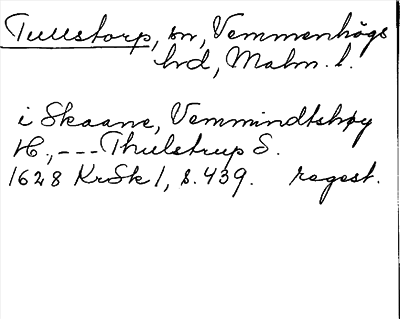 Tullstorp, sn, Vemmenhögs
hd, Malm. l.
i Skaane, Vemmindtshøy
H., --- Thulstrup S.
1628 KrSk 1, s. 439. regest.